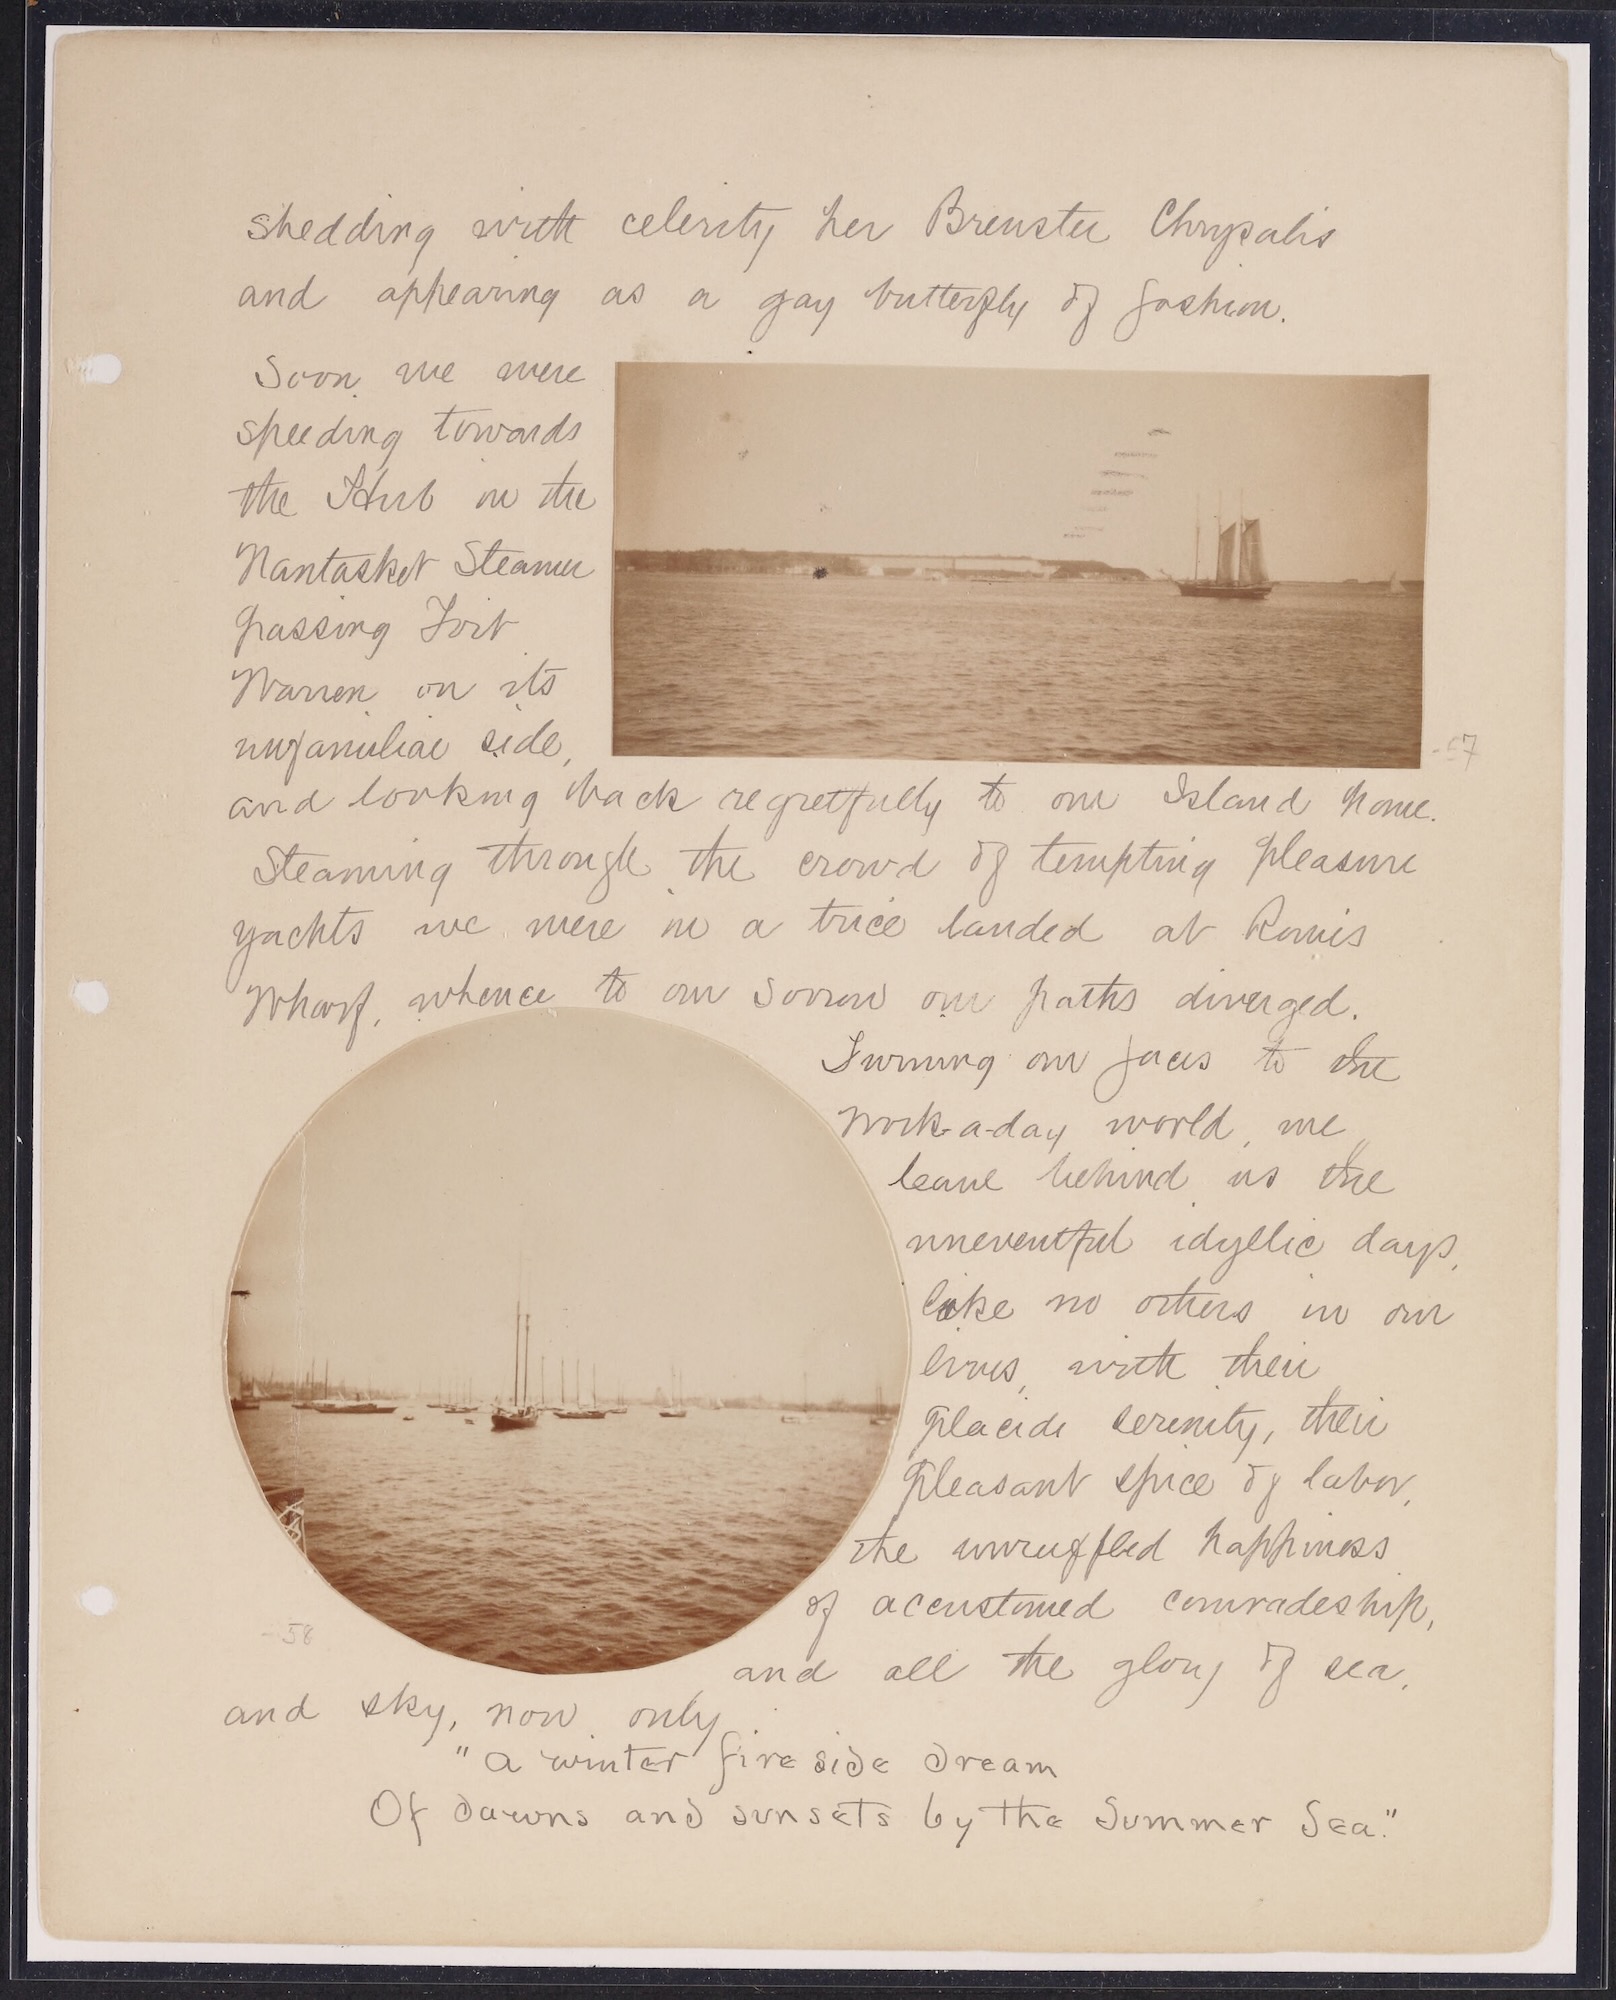 shedding with celerity her Brewster Chrysalis
and appearing as a gay butterfly of fashion.
Soon we were
speeding towards
the Hub on the
Nantasket Steamer
passing Fort
Warren on its
unfamiliar side,
and looking back regretfully to our Island home.
Steaming through the crowd of tempting pleasure
yachts we were in a trice landed at Rowe's
Wharf, whence to our sorrow our paths diverged.
Turning our faces to the
work-a-day world, we
leave behind us the
uneventful idyllic days,
like no others in our
lives, with their
placid serenity, their
pleasant spice of labor,
the unruffled happiness
of accustomed comradeship,
and all the glory of sea,
and sky, now only
"A winter fireside dream
Of dawns and sunsets by the Summer Sea."
57
58